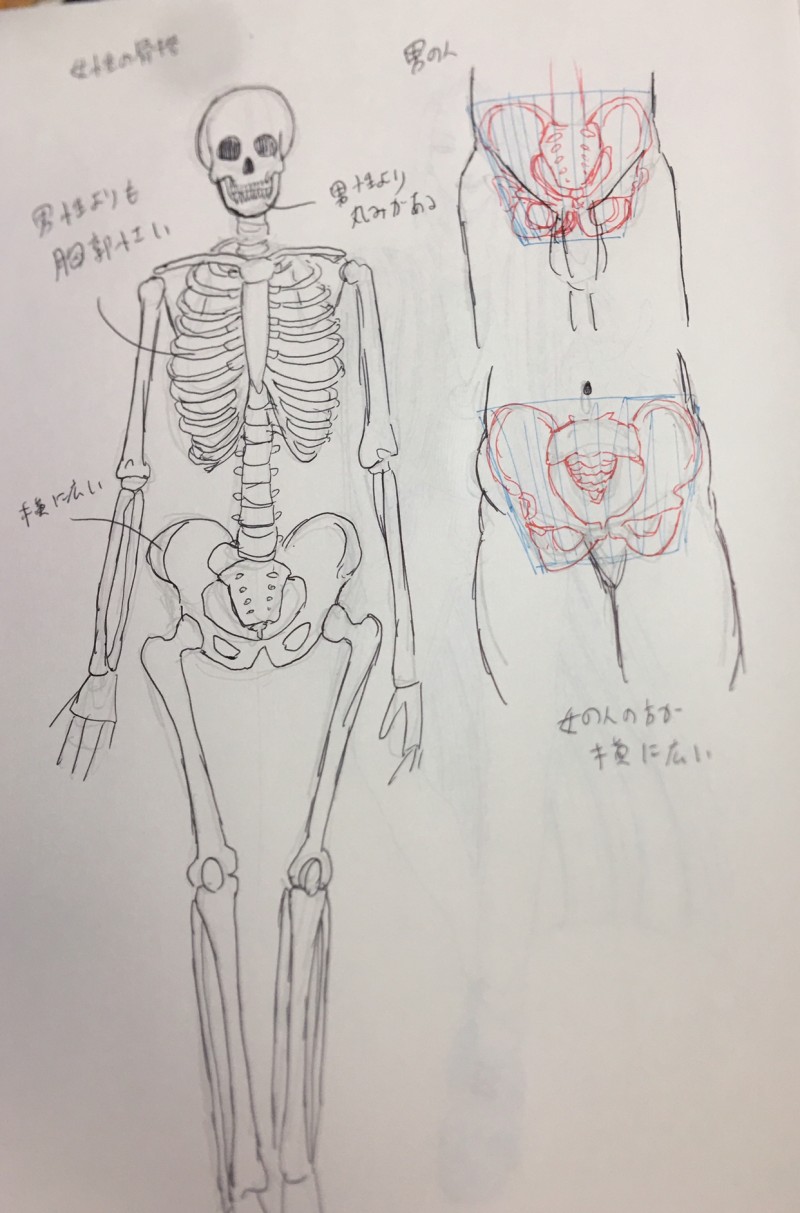 女性の骨格
男の人
男性よりも
胸郭小さい
男性より
丸みがある
横に広い
女の人の方が
横に広い